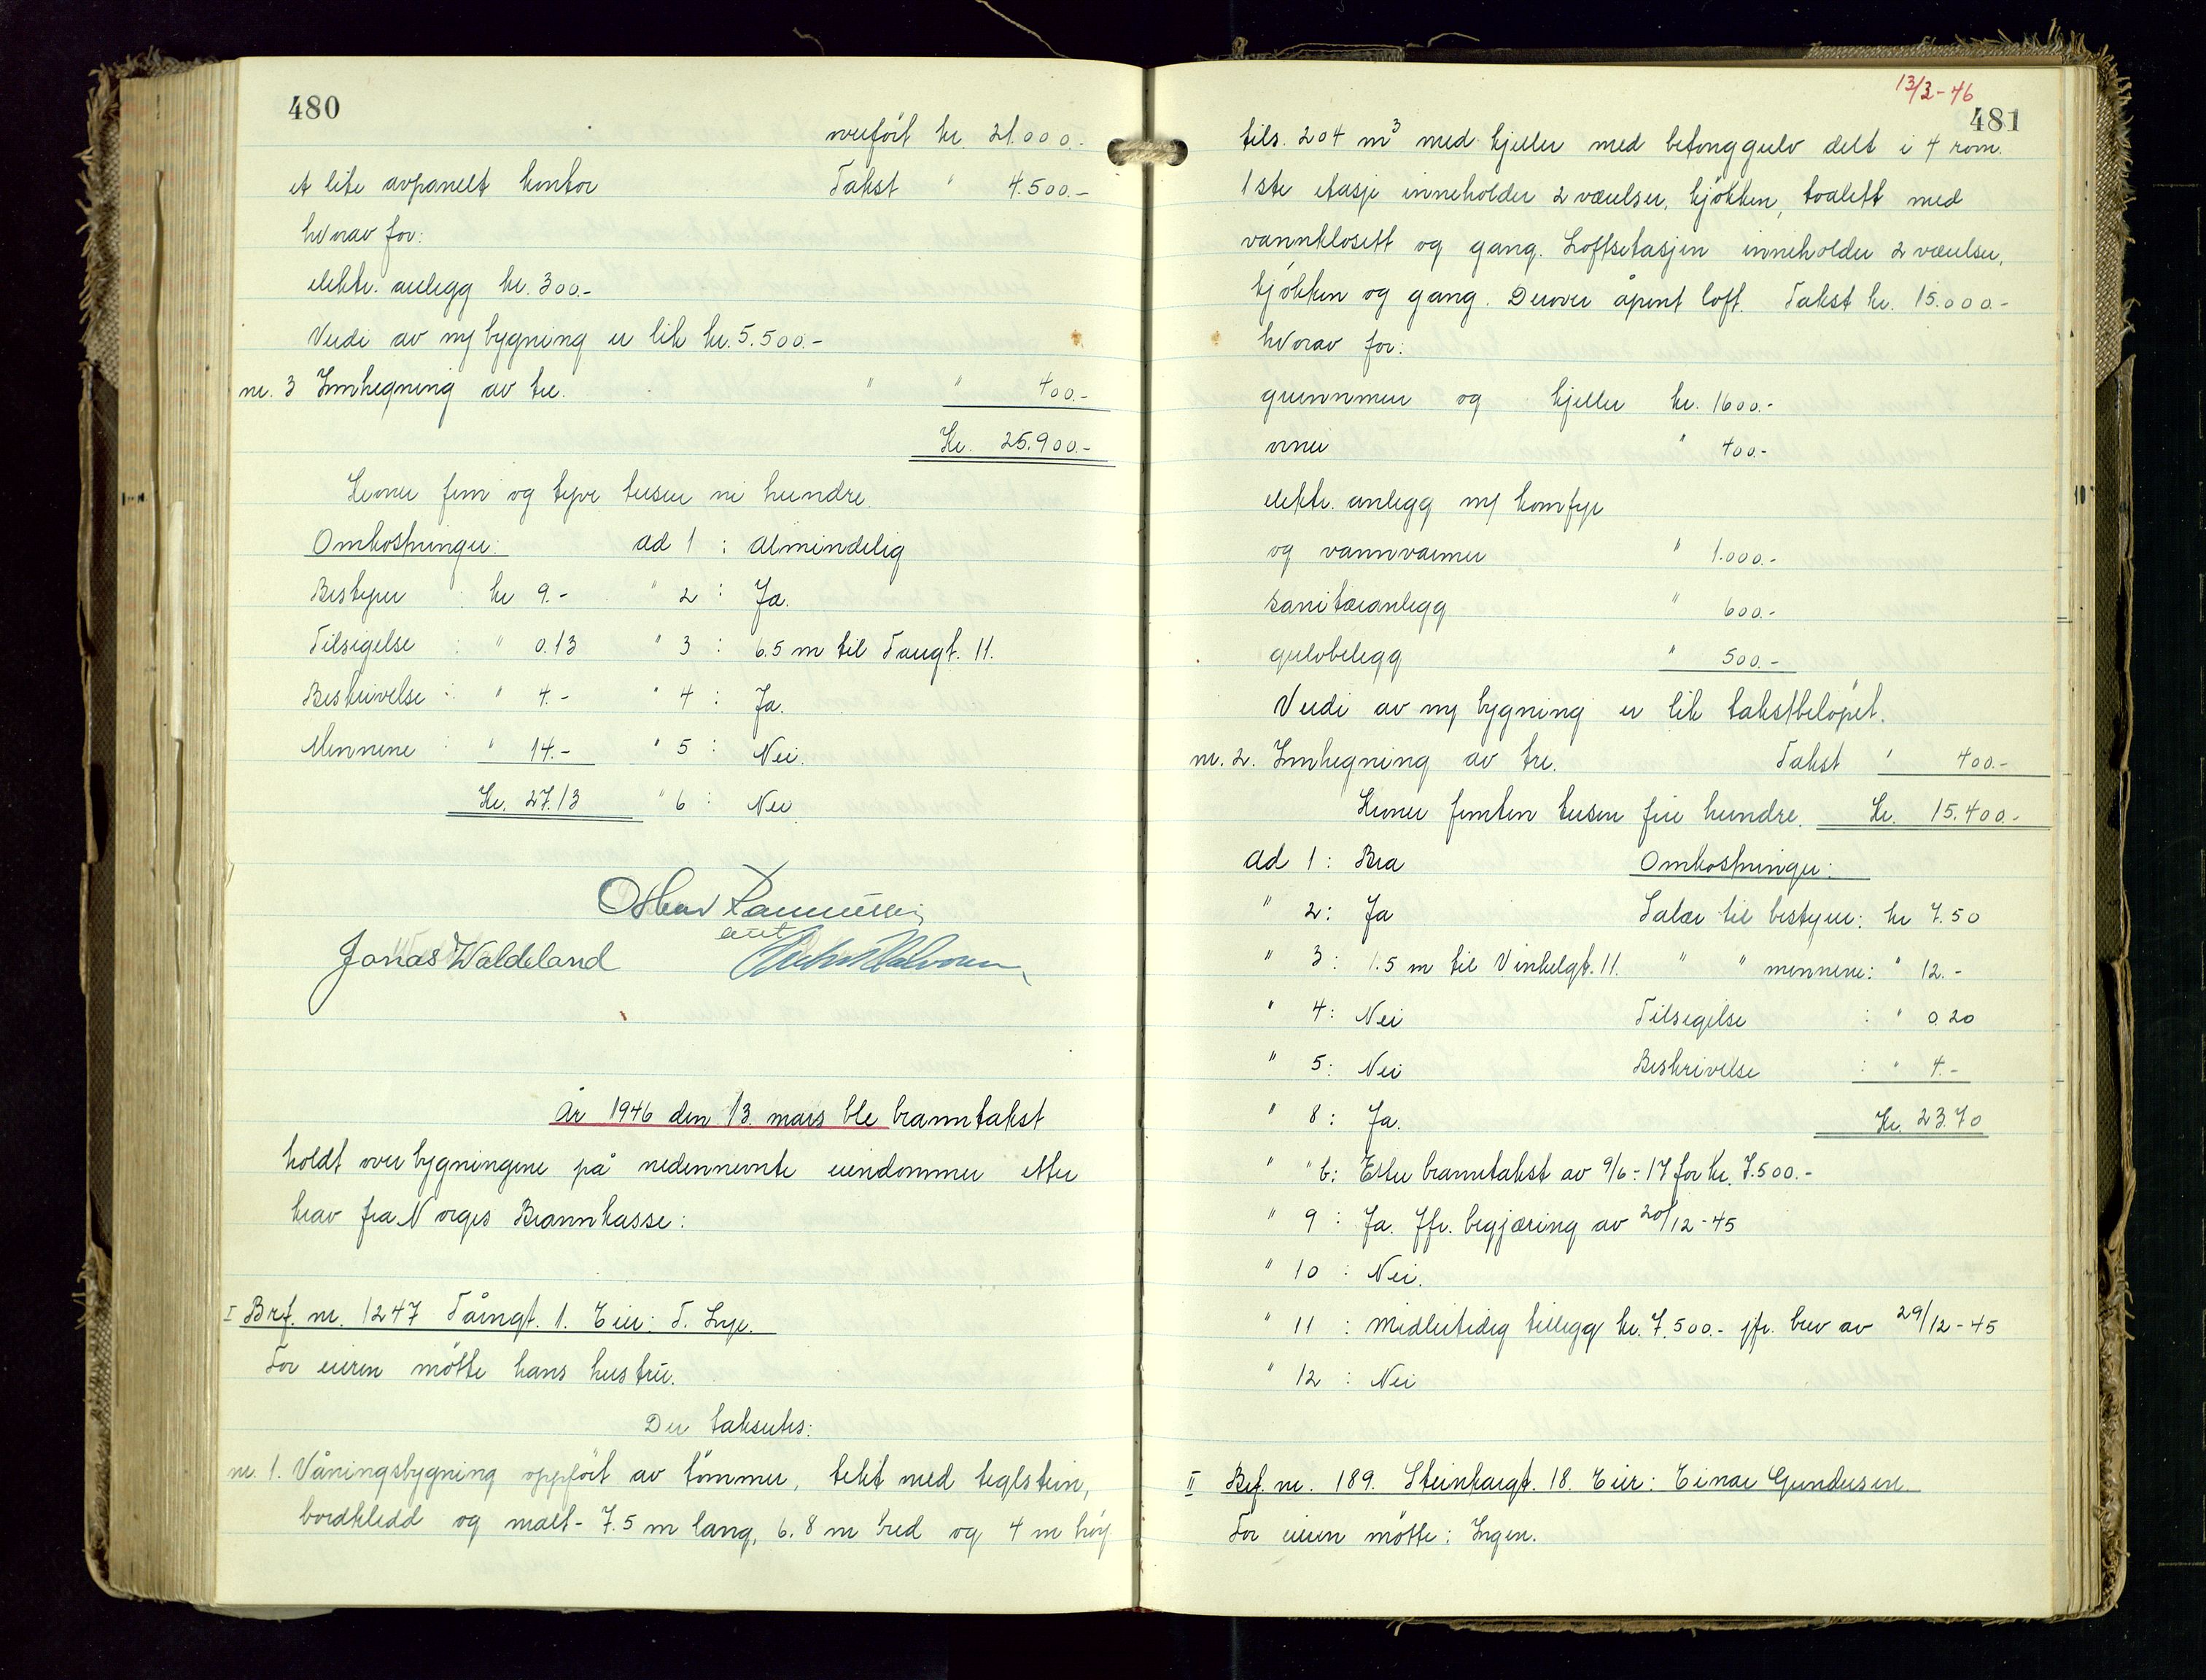 480
overført kr. 21.000.-
et lite avpanelt kontor Takst " 4.500.-
hvorav for:
elektr. anlegg kr. 300.-
Verdi av ny bygning er lik kr. 5.500.-
nr. 3 Innhegning av tre. " " 400.-
Kr. 25.900.-
Kroner fem og tyve tusen ni hundre.
Omkostninger: ad 1 : Almindelig
Bestyrer : kr 9.- " 2 : Ja.
Tilsigelse : " 0.13 " 3 : 6.5 m til Taugt. 11.
Beskrivelse : " 4.- " 4 : Ja.
Mennene : " 14.- " 5 : Nei.
Kr. 27.13 " 6 : Nei.
Jonas Waldeland
År 1946 den 13. mars ble branntakst
holdt over bygningene på nedennevnte eiendommer etter
krav fra Norges Brannkasse:
I Brf. nr. 1247 Tårngt. 1. Eier: T. Lye.
For eieren møtte hans hustru.
Der takseres:
nr. 1. Våningsbygning oppført av tømmer, tekt med teglstein,
bordkledd og malt - 7.5 m lang, 6.8 m bred og 4 m høy
13/3-46
481
tils. 204 m3 med kjeller med betonggulv delt i 4 rom.
1ste etasje inneholder 2 værelser, kjøkken, toalett med
vannklosett og gang. Loftsetasjen inneholder 2 værelser,
kjøkken og gang. Derover åpent loft. Takst kr. 15.000.-
hvorav for:
grunnmur og kjeller kr. 1600.-
ovner " 400.-
elektr. anlegg m/ komfyr
og vannvarmer " 1.000.-
sanitæranlegg " 600.-
gulvbelegg " 500.-
Verdi av ny bygning er lik takstbeløpet.
nr. 2. Innhegning av tre. Takst " 400.-
Kroner femten tusen fire hundre. Kr. 15.400.-
ad 1 : Bra Omkostninger:
" 2 : Ja Salær til bestyrer: kr 7.50
" 3 : 1.5 m til Vinkelgt. 11. " " mennene: " 12.-
" 4 : Nei Tilsigelse : " 0.20
" 5 : Nei Beskrivelse : " 4.-
" 8 : Ja. Kr. 23.70
" " b: Etter branntakst av 9/6-17 for kr. 7.500.-
" 9 : Ja. Jfr. begjæring av 20/12-45
" 10 : Nei.
" 11 : Midlertidig tillegg kr. 7.500.- jfr. brev av 29/12-45
" 12 : Nei
II Brf. nr. 189. Steinkargt. 18. Eier: Einar Gundersen.
For eieren møtte: Ingen.